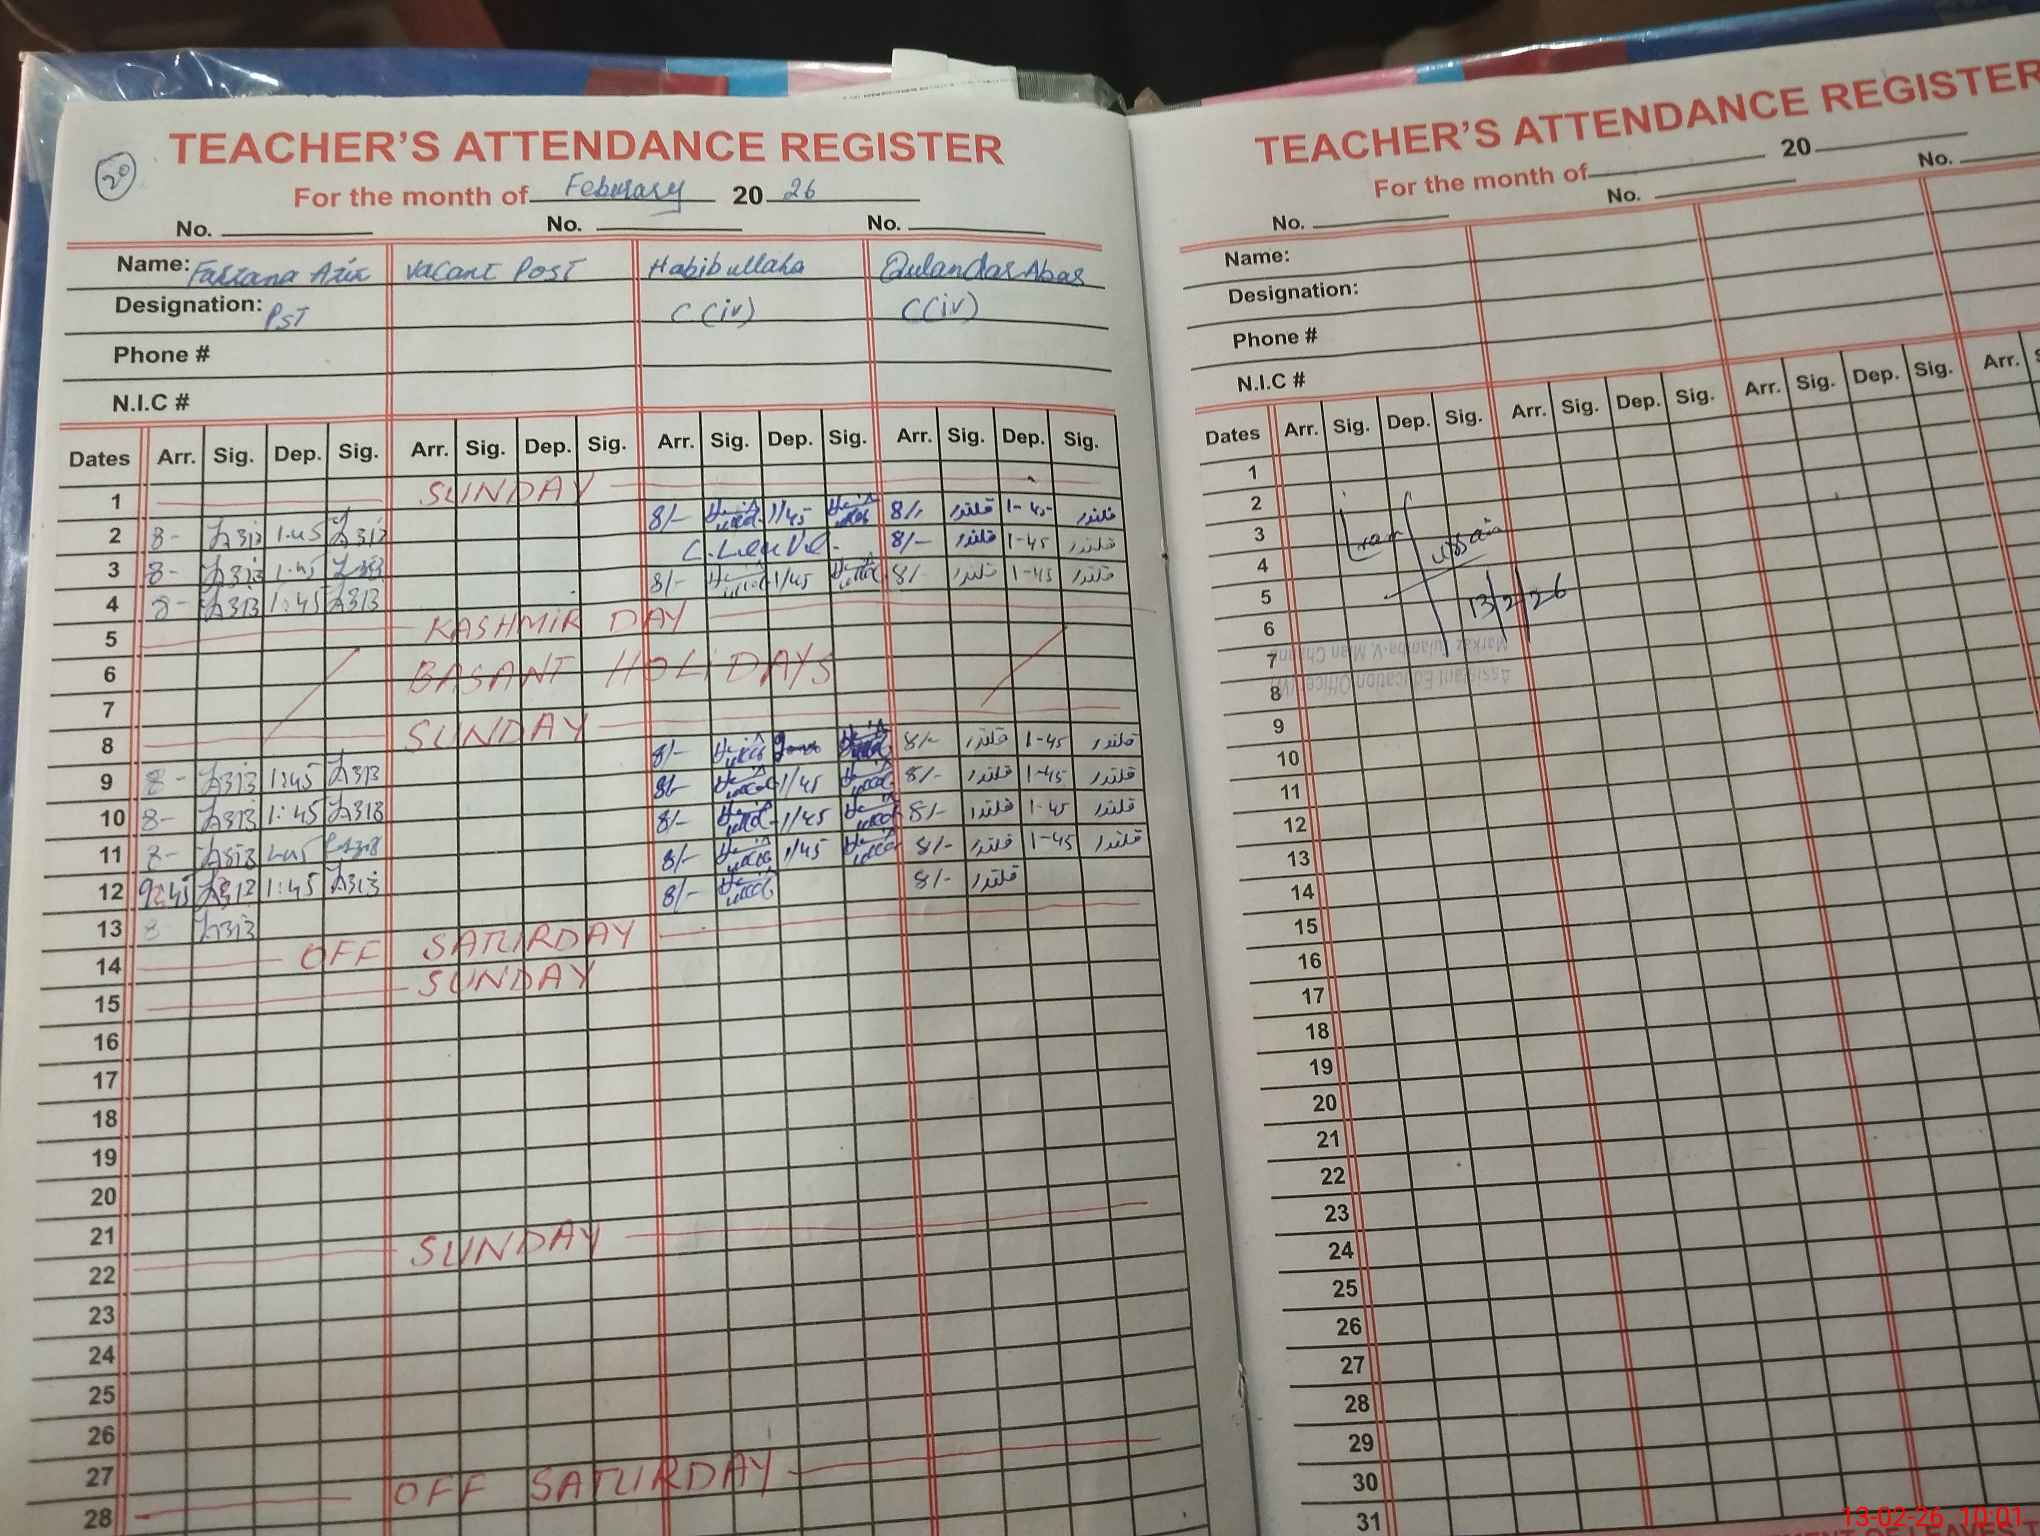 20
TEACHER'S ATTENDANCE REGISTER
For the month of Feburary 20 26
No. No. No.
Name: Farzana Aziz Vacant Post Habib ullaha Qulandar Abas
Designation: PST C (iv) C (iv)
Phone #
N.I.C #
Dates Arr. Sig. Dep. Sig. Arr. Sig. Dep. Sig. Arr. Sig. Dep. Sig. Arr. Sig. Dep. Sig.
1 SUNDAY
2 8- 1:45 8/- 1/45 8/- قلندر 1-45 قلندر
3 8- 1:45 C. Leave 8/- قلندر 1-45 قلندر
4 8- 1:45 8/- 1/45 8/- قلندر 1-45 قلندر
5 KASHMIR DAY
6 BASANT HOLIDAYS
7
8 SUNDAY
9 8- 1:45 8/- 8/- قلندر 1-45 قلندر
10 8- 1:45 8/- 1/45 8/- قلندر 1-45 قلندر
11 8- 1:45 8/- 1/45 8/- قلندر 1-45 قلندر
12 9:45 1:45 8/- 1/45 8/- قلندر 1-45 قلندر
13 8 8/- 8/- قلندر
14 OFF SATURDAY
15 SUNDAY
16
17
18
19
20
21
22 SUNDAY
23
24
25
26
27
28 OFF SATURDAY
TEACHER'S ATTENDANCE REGISTER
For the month of 20
No. No. No.
Name:
Designation:
Phone #
N.I.C #
Dates Arr. Sig. Dep. Sig. Arr. Sig. Dep. Sig. Arr. Sig. Dep. Sig. Arr.
1
2
3
4
5
13/2/26
6
7
Assistant Education Officer
8
9
10
11
12
13
14
15
16
17
18
19
20
21
22
23
24
25
26
27
28
29
30
31
13-02-26 10:01